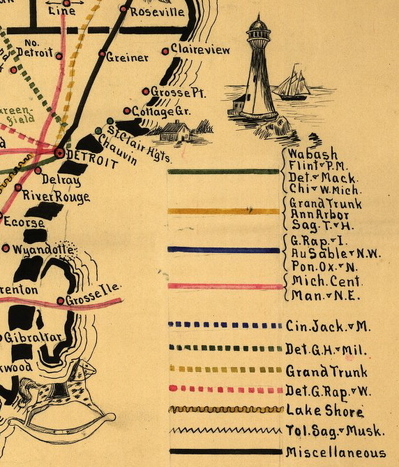 Line
Roseville
No.
Detroit
Greiner
Claireview
Grosse Pt.
Cottage Gr.
St. Clair Hgts.
Chauvin
DETROIT
Delray
River Rouge
Ecorse
Wyandotte
Grosse Ile.
Gibraltar
Wabash
Flint & P.M.
Det. & Mack.
Chi & W. Mich.
Grand Trunk
Ann Arbor
Sag. T. & H.
G. Rap. & I.
Au Sable & N.W.
Pon. Ox. & N.
Mich. Cent.
Man. & N.E.
Cin. Jack. & M.
Det. G.H. & Mil.
Grand Trunk
Det. G. Rap. & W.
Lake Shore
Tol. Sag. & Musk.
Miscellaneous